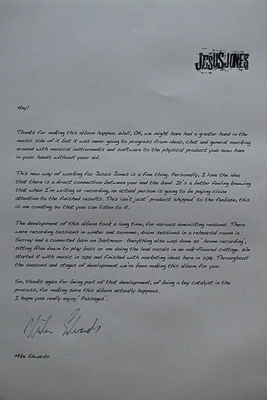 JESUS JONES
Hey!
Thanks for making this album happen. Well, OK, we might have had a greater hand in the
music side of it but it was never going to progress from ideas, chat and general messing
around with musical instruments and software to the physical product you now have
in your hands without your aid.
This new way of working for Jesus Jones is a fine thing. Personally, I love the idea
that there is a direct connection between you and the band. It is a better feeling knowing
that when I'm writing or recording, an actual person is going to be paying close
attention to the finished results. This isn't just 'product' shipped to the fanbase, this
is me creating so that you can listen to it.
The development of this album took a long time, for various unexciting reasons. There
were recording sessions in winter and summer, drum sessions in a rehearsal room in
Surrey and a converted barn on Dartmoor. Everything else was done at 'home recording',
sitting Alan down to play bass or me doing the lead vocals in an oak-floored cottage. We
started it with music in and finished with marketing ideas here in 2018. Throughout
the seasons and stages of development we've been making this album for you.
So, thanks again for being part of that development, of being a key catalyst in the
process, for making sure this album actually happens.
I hope you really enjoy 'Passages'.
Mike Edwards
Mike Edwards